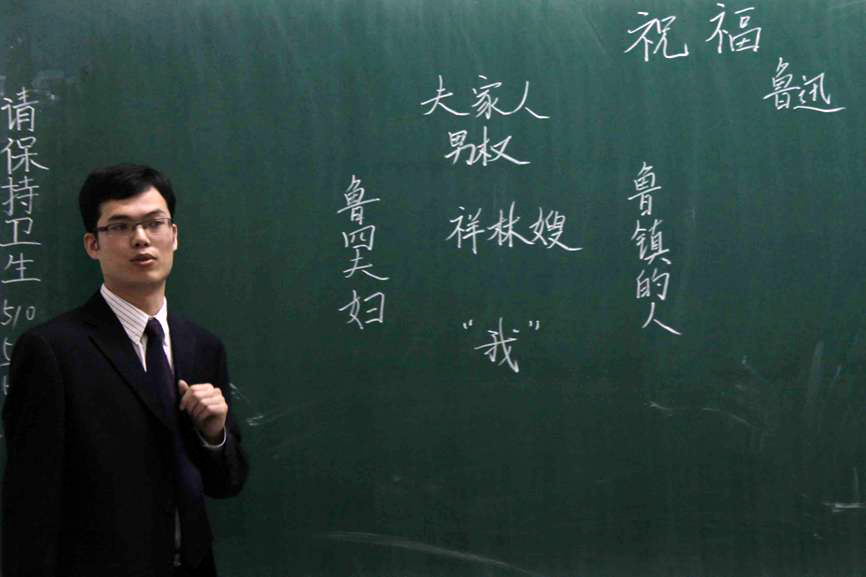 祝福
鲁迅
夫家人
男权
鲁四夫妇
祥林嫂
鲁镇的人
“我”
请保持卫生
510